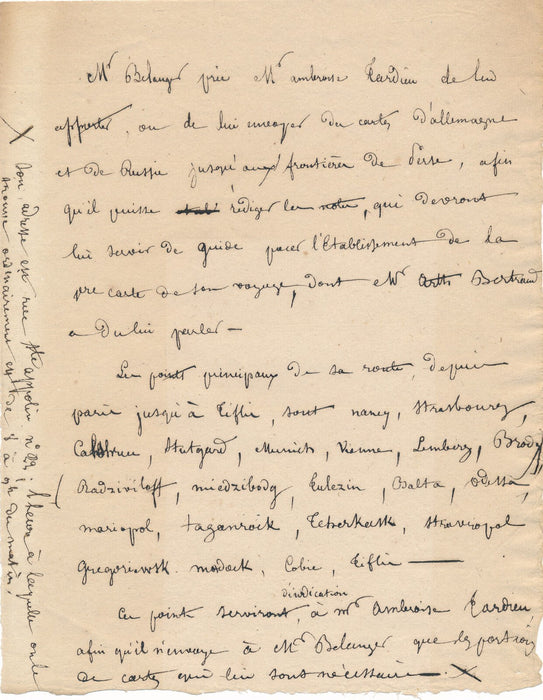 Mr Belanger prie Mr ambroise Tardieu de lui
apporter, ou de lui envoyer des cartes d'allemagne
et de Russie jusqu'aux frontières de Perse, afin
qu'il puisse rédiger les notes, qui devront
lui servir de guide pour l'Etablissement de la
pre carte de son voyage, dont Mr Arth Bertrand
a du lui parler —
Les points principaux de sa route, depuis
paris jusqu'à Tiflis, sont nancy, Strasbourg,
Calsruc, Stutgard, Munich, Vienne, Lemberg, Brody,
Radziviloff, miedzibodg, Tulezin, Balta, odessa,
mariopol, taganrock, Tcherkask, stavropol
Gregoriewsk. mosdock, Cobie, Tiflis —
d'indication
Ces points serviront, à mr Ambroise Tardieu
afin qu'il n'envoye à Mr Belanger que les portions
de cartes qui lui sont nécessaires. X
X Son adresse est rue Ste appolin no 29; l'heure à laquelle on le
trouve ordinairement est de 8 à 9h du matin.